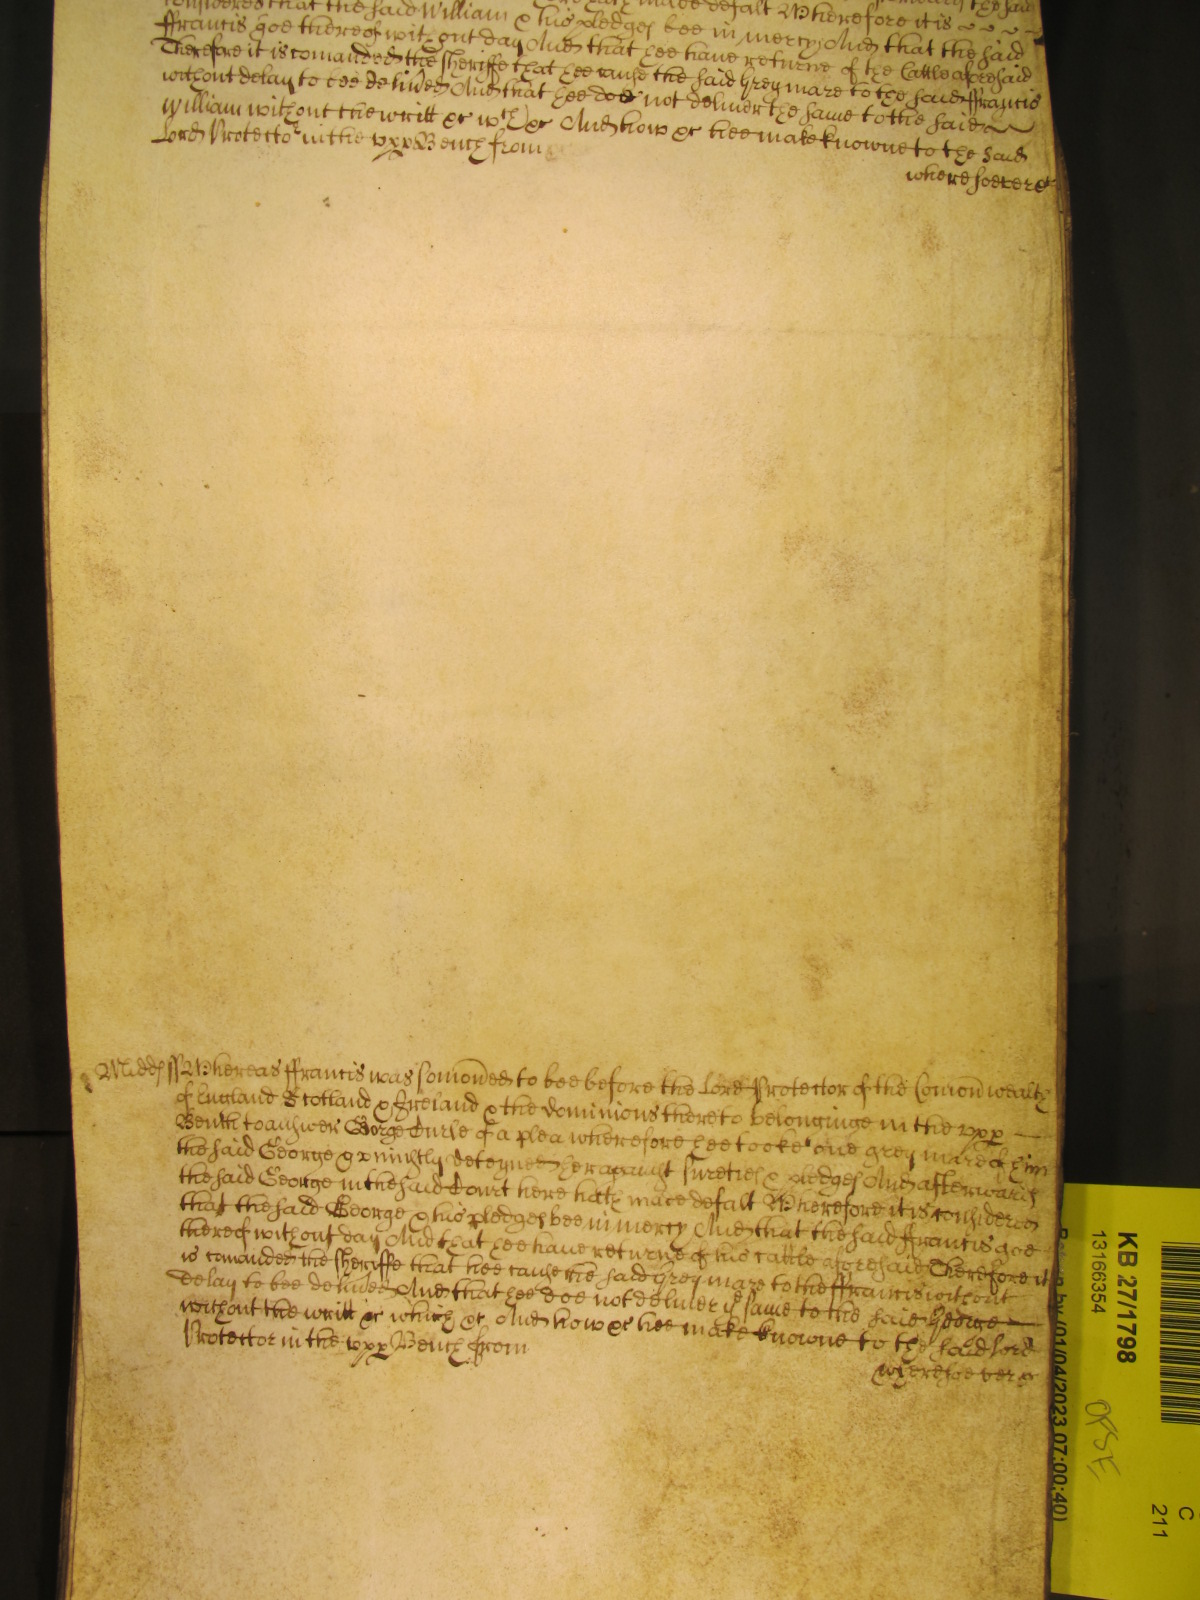 considered that the said William & his pledges bee in mercy And that the said
ffrancis goe thereof without day And that hee have returne of the Cattle aforesaid
Therefore it is comanded the sheriffe that hee cause the said Grey mare to the said ffrancis
without delay to bee delivered And that hee doe not deliver the same to the said
William without the writt &c wch &c And how &c hee make knowne to the said
Lord Protector in the upp Bench from
wheresoever &c
Midds ss Whereas ffrancis was somoned to bee before the Lord Protector of the Comonwealth
of England Scotland & Ireland & the dominions thereto belonginge in the upp
Bench to answer George Curle of a plea wherefore hee tooke one grey mare of him
the said George & uniustly deteyned her against sureties & pledges And afterwards
the said George in the said Court here hath made defalt Wherefore it is considered
that the said George & his pledges bee in mercy And that the said ffrancis goe
thereof without day And that hee have returne of his cattle aforesaid Therefore it
is comanded the sheriffe that hee cause the said Grey mare to the ffrancis without
delay to bee delivered And that hee doe not deliver ye same to the said George
without the writt &c which &c And how &c hee make knowne to the said Lord
Protector in the upp Bench from
wheresoever &c
KB 27/1798
13166354
by (01/04/2023 07:00:40)
C
211